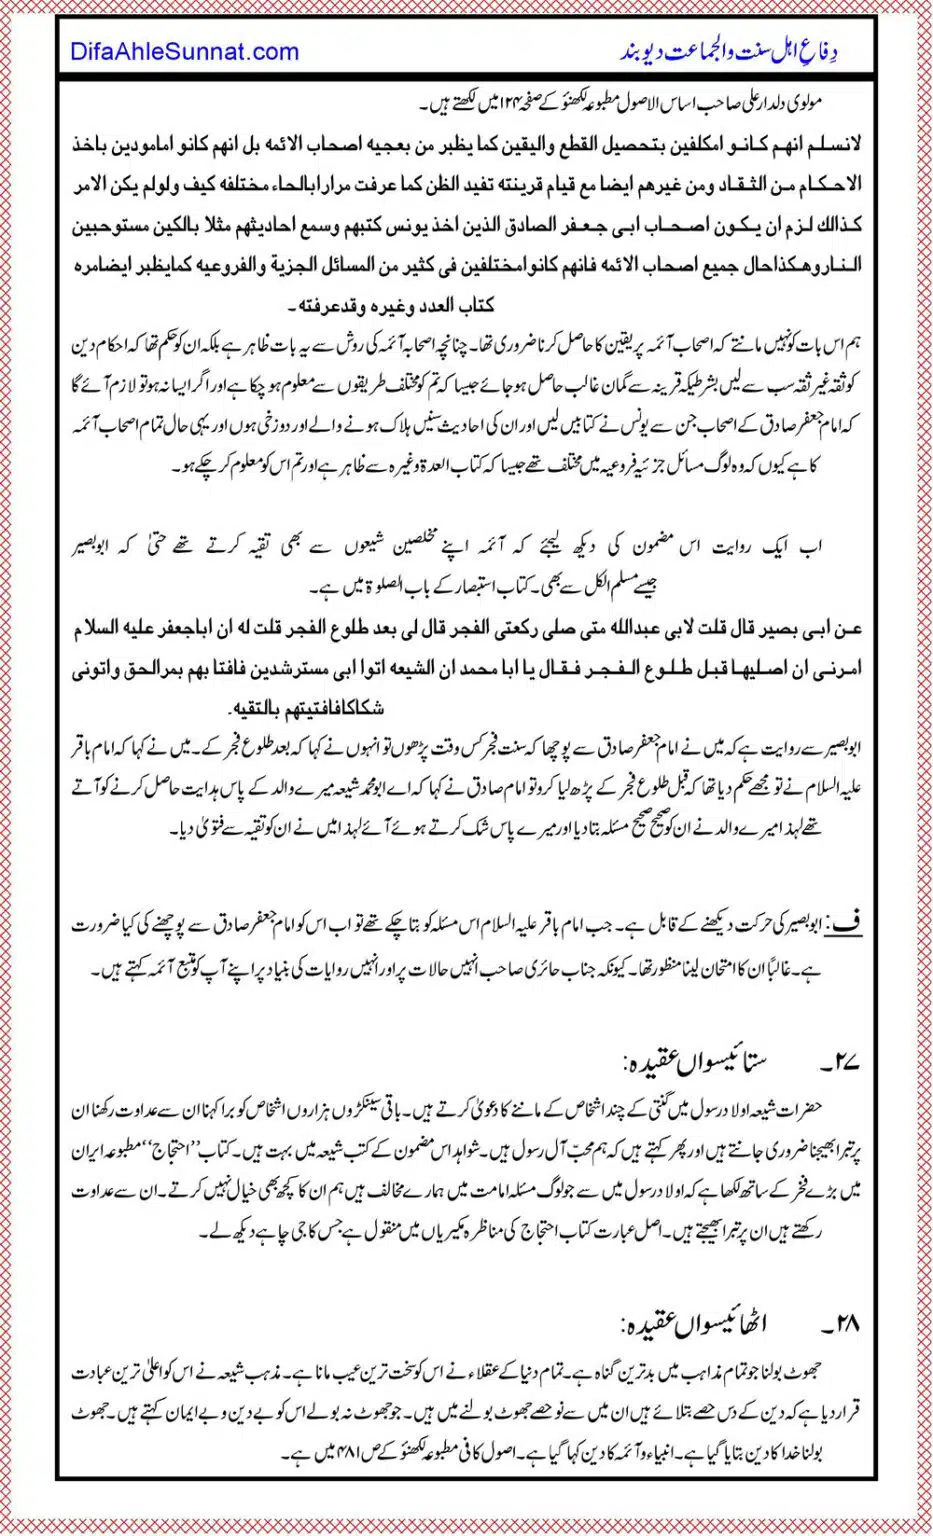 DifaAhleSunnat.com
دِفاعِ اہل سنت والجماعت دیوبند
مولوی دلدار علی صاحب اساس الاصول مطبوعہ لکھنؤ کے صفحہ ۱۲۴ میں لکھتے ہیں۔
لانسلم انهم کانوا امکلفین بتحصیل القطع والیقین کما یظبر من بعجیه اصحاب الائمه بل انهم کانوا امامودین باخذ
الاحکام من الثقاد ومن غیرهم ایضا مع قیام قرینته تفید الظن کما عرفت مرارابالحاء مختلفه کیف ولولم یکن الامر
کذالك لزم ان یکون اصحاب ابی جعفر الصادق الذین اخذ یونس کتبهم وسمع احادیثهم مثلا بالکین مستوحبین
الناروهکذاحال جمیع اصحاب الائمه فانهم کانوامختلفین فی کثیر من المسائل الجزیة والفروعیه کمایظبر ایضامره
کتاب العدد وغیره وقدعرفته۔
ہم اس بات کو نہیں مانتے کہ اصحاب آئمہ پر یقین کا حاصل کرنا ضروری تھا۔ چنانچہ اصحابہ آئمہ کی روش سے یہ بات ظاہر ہے بلکہ ان کو حکم تھا کہ احکام دین
کو ثقہ غیر ثقہ سب سے لیں بشرطیکہ قرینہ سے گمان غالب حاصل ہو جائے جیسا کہ تم کو مختلف طریقوں سے معلوم ہو چکا ہے اور اگر ایسا نہ ہو تو لازم آئے گا
کہ امام جعفر صادق کے اصحاب جن سے یونس نے کتابیں لیں اور ان کی احادیث سنیں ہلاک ہونے والے اور دوزخی ہوں اور یہی حال تمام اصحاب آئمہ
کا ہے کیوں کہ وہ لوگ مسائل جزئیہ فروعیہ میں مختلف تھے جیسا کہ کتاب العدۃ وغیرہ سے ظاہر ہے اور تم اس کو معلوم کر چکے ہو۔
اب ایک روایت اس مضمون کی دیکھ لیجئے کہ آئمہ اپنے مخلصین شیعوں سے بھی تقیہ کرتے تھے حتیٰ کہ ابوبصیر
جیسے مسلم الکل سے بھی۔ کتاب استبصار کے باب الصلوۃ میں ہے۔
عن ابی بصیر قال قلت لابی عبدالله متی صلی رکعتی الفجر قال لی بعد طلوع الفجر قلت له ان اباجعفر علیه السلام
امرنی ان اصلیها قبل طلوع الفجر فقال یا ابا محمد ان الشیعه اتوا ابی مسترشدین فافتا بهم بمرالحق واتونی
شکاکافافتیتهم بالتقیه.
ابوبصیر سے روایت ہے کہ میں نے امام جعفر صادق سے پوچھا کہ سنت فجر کس وقت پڑھوں تو انہوں نے کہا کہ بعد طلوع فجر کے۔ میں نے کہا کہ امام باقر
علیہ السلام نے تو مجھے حکم دیا تھا کہ قبل طلوع فجر کے پڑھ لیا کرو تو امام صادق نے کہا کہ اے ابومحمد شیعہ میرے والد کے پاس ہدایت حاصل کرنے کو آتے
تھے لہذا میرے والد نے ان کو صحیح صحیح مسئلہ بتا دیا اور میرے پاس شک کرتے ہوئے آئے لہذا میں نے ان کو تقیہ سے فتویٰ دیا۔
ف: ابوبصیر کی حرکت دیکھنے کے قابل ہے۔ جب امام باقر علیہ السلام اس مسئلہ کو بتا چکے تھے تو اب اس کو امام جعفر صادق سے پوچھنے کی کیا ضرورت
ہے۔ غالبًا ان کا امتحان لینا منظور تھا۔ کیونکہ جناب حائری صاحب انہیں حالات پر اور انہیں روایات کی بنیاد پر اپنے آپ کو متبع آئمہ کہتے ہیں۔
۲۷۔ ستائیسواں عقیدہ:
حضرات شیعہ اولاد رسول میں گنتی کے چند اشخاص کے ماننے کا دعویٰ کرتے ہیں۔ باقی سینکڑوں ہزاروں اشخاص کو برا کہنا ان سے عداوت رکھنا ان
پر تبرا بھیجنا ضروری جانتے ہیں اور پھر کہتے ہیں کہ ہم محبّ آل رسول ہیں۔ شواہد اس مضمون کے کتب شیعہ میں بہت ہیں۔ کتاب ’’احتجاج‘‘ مطبوعہ ایران
میں بڑے فخر کے ساتھ لکھا ہے کہ اولاد رسول میں سے جو لوگ مسئلہ امامت میں ہمارے مخالف ہیں ہم ان کا کچھ بھی خیال نہیں کرتے۔ ان سے عداوت
رکھتے ہیں ان پر تبرا بھیجتے ہیں۔ اصل عبارت کتاب احتجاج کی مناظرہ مکیریاں میں منقول ہے جس کا جی چاہے دیکھ لے۔
۲۸۔ اٹھائیسواں عقیدہ:
جھوٹ بولنا جو تمام مذاہب میں بدترین گناہ ہے۔ تمام دنیا کے عقلاء نے اس کو سخت ترین عیب مانا ہے۔ مذہب شیعہ نے اس کو اعلیٰ ترین عبادت
قرار دیا ہے کہ دین کے دس حصے بتلائے ہیں ان میں سے نو حصے جھوٹ بولنے میں ہیں۔ جو جھوٹ نہ بولے اس کو بے دین و بے ایمان کہتے ہیں۔ جھوٹ
بولنا خدا کا دین بتایا گیا ہے۔ انبیاء و آئمہ کا دین کہا گیا ہے۔ اصول کافی مطبوعہ لکھنؤ کے ص ۴۸۱ میں ہے۔